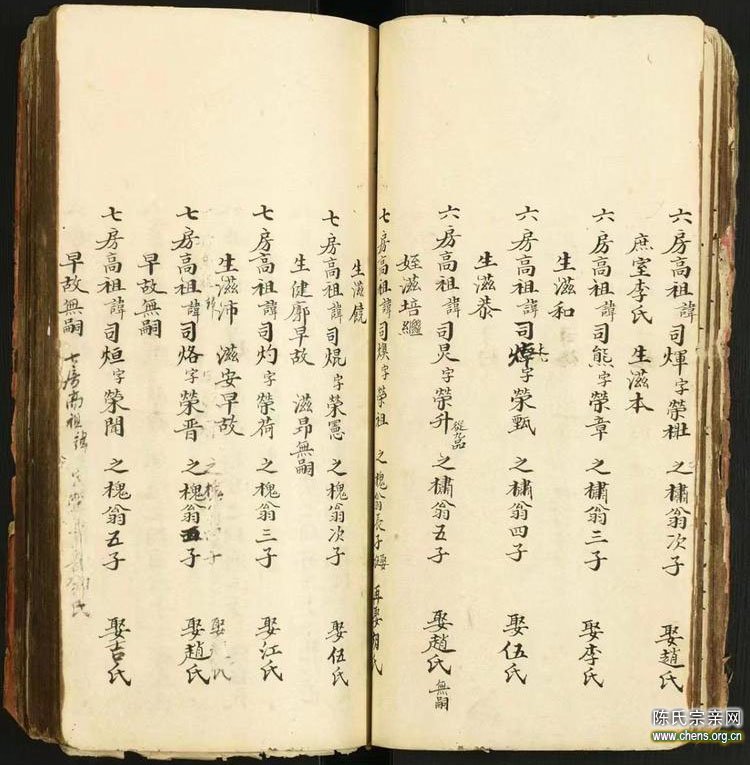 六房高祖諱司煇字榮 之橚翁次子 娶趙氏
庶室李氏 生滋本
六房高祖諱司熊字榮章 之橚翁三子 娶李氏
生滋和
六房高祖諱司 字榮甄 之橚翁四子 娶伍氏
生滋恭
六房高祖諱司炅字榮升 從九品 之橚翁五子 娶趙氏 無嗣
姪滋培繼
七房高祖諱司煥字榮祖 之槐翁長子 娶 再娶胡氏
生滋饒
七房高祖諱司焜字榮憲 之槐翁次子 娶伍氏
生健廓早故 滋昂無嗣
七房高祖諱司灼字榮荷 之槐翁三子 娶江氏
生滋沛 滋安早故
七房高祖諱司烙字榮晋 之槐翁 子 娶趙氏
早故無嗣
七房高祖諱司烜字榮開 之槐翁五子 娶吉氏
早故無嗣 七房高祖諱
陈氏宗亲网
www.chens.org.cn